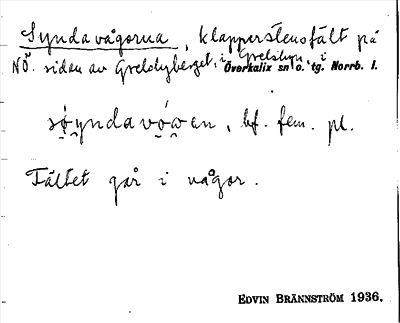 Syndavågorna, klapperstensfält på
NÖ. sidan av Grelsbyberget, i Grelsbyn, i
Överkalix sn o. tg. Norrb. l.
sýyndavó́wen, bf. fem. pl.
Fältet går i vågor.
EDVIN BRÄNNSTRÖM 1936.